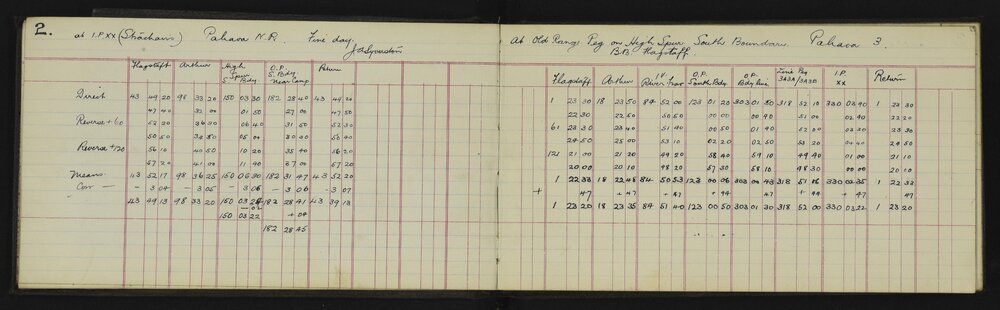 2.
at I.P. XX (Strachan's) Pahaoa N.R. Fine day.
Flagstaff Arthur High Spur S. Bdy O.P. S. Bdy. near Camp Return
Direct 43 49 20 98 33 20 150 03 30 182 28 40 43 49 20
47 40 32 00 01 50 27 00 47 50
Reverse + 60 53 20 36 30 06 40 31 50 52 30
50 50 34 50 05 00 30 00 53 40
Reverse + 120 56 10 40 50 10 20 35 40 56 20
57 20 41 00 11 40 37 00 57 20
Means 43 52 17 98 36 25 150 06 30 182 31 47 43 52 20
Corr — — 3 04 — 3 05 — 3 06 — 3 06 — 3 07
43 49 13 98 33 20 150 03 24 182 28 41 43 49 13
— 02 + 04
150 03 22
182 28 45
At Old Rang. Peg on High Spur South Boundary. Pahaoa 3.
B.B. Flagstaff.
Flagstaff Arthur River Trav O.P. South Bdy O.P. Bdy line Line Peg 3A3A/3A3B I.P. XX Return
1 23 30 18 23 50 84 52 00 123 01 20 303 01 50 318 52 10 330 03 40 1 23 30
22 30 22 50 50 50 00 00 00 40 51 00 02 40 22 20
61 23 30 23 40 51 40 00 50 01 40 52 00 03 30 23 30
24 50 25 00 53 10 02 20 02 50 53 20 04 40 24 50
121 21 00 21 20 49 20 58 40 59 10 49 40 01 00 21 10
20 00 20 10 48 20 57 30 58 10 48 30 00 00 20 10
1 22 33 18 22 48 84 50 53 123 00 06 303 00 43 318 51 16 330 02 35 1 22 33
+ 47 + 47 + 47 + 44 47 + 44 47 47
1 23 20 18 23 35 84 51 40 123 00 50 303 01 30 318 52 00 330 03 22 1 23 20